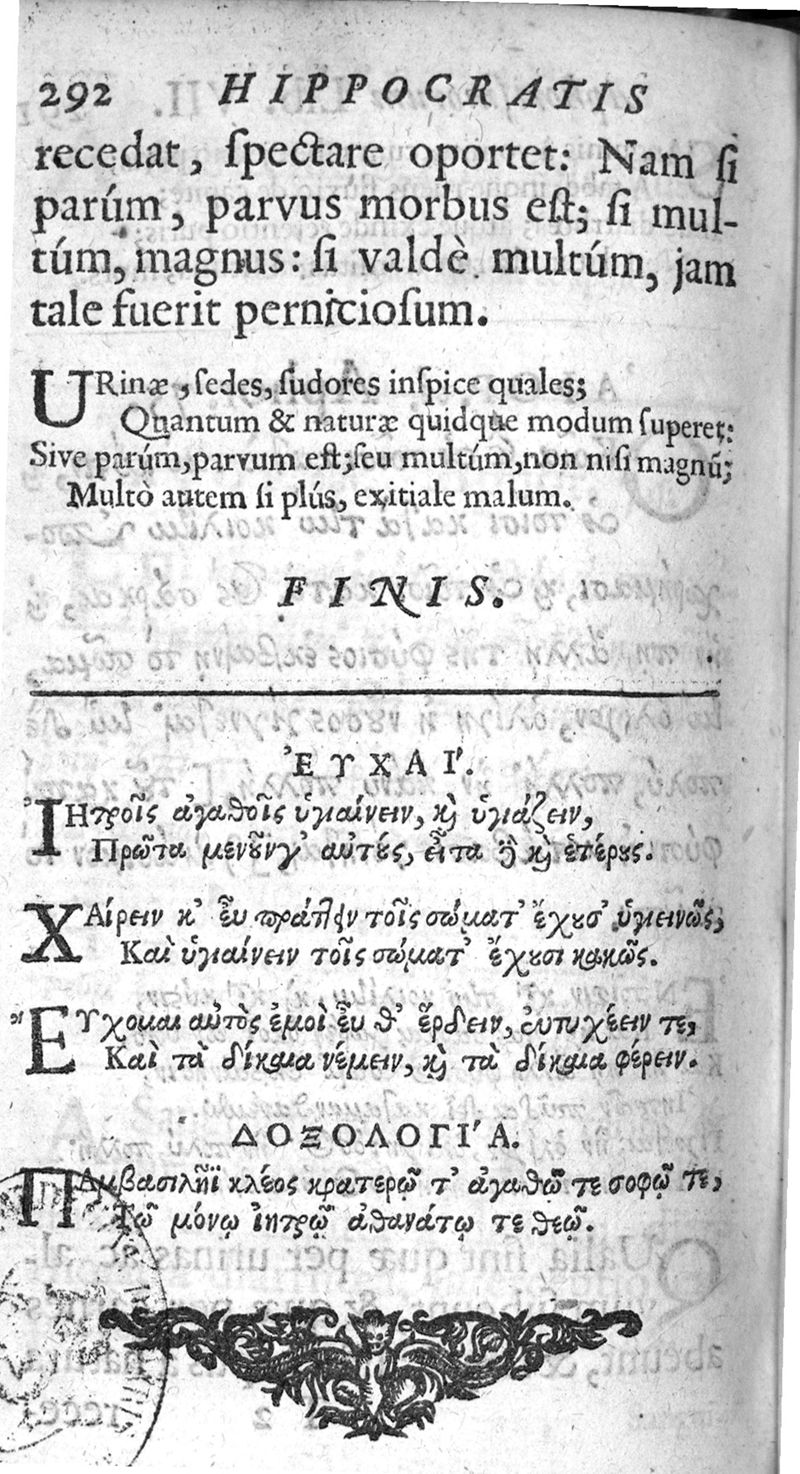 292 HIPPOCRATIS
recedat, ſpectare oportet: Nam ſi
parúm, parvus morbus eſt; ſi mul-
túm, magnus: ſi valdè multúm, jam
tale fuerit pernicioſum.
URinæ, ſedes, ſudores inſpice quales;
Quantum & naturæ quidque modum ſuperet:
Sive parúm, parvum eſt; ſeu multúm, non niſi magnũ;
Multò autem ſi plús, exitiale malum.
FINIS.
ἘΥΧΑΊ.
ἸΗτροῖς ἀγαθοῖς ὑγιαίνειν, καὶ ὑγιάζειν,
Πρῶτα μενοῦνγ' αὐτούς, εἶτα δὲ καὶ ἑτέρους.
ΧΑίρειν κ' εὖ πράττειν τοῖς σώματ' ἔχουσ' ὑγιεινῶς,
Καὶ ὑγιαίνειν τοῖς σώματ' ἔχουσι κακῶς.
ΕΥχομαι αὐτὸς ἐμοὶ εὖ θ' ἕρδειν, εὐτυχέειν τε,
Καὶ τὰ δίκαια νέμειν, καὶ τὰ δίκαια φέρειν.
ΔΟΞΟΛΟΓΊΑ.
ΠΑμβασιλῆϊ κλέος κρατερῷ τ' ἀγαθῷ τε σοφῷ τε,
Τῷ μόνῳ ἰητρῷ ἀθανάτῳ τε θεῷ.